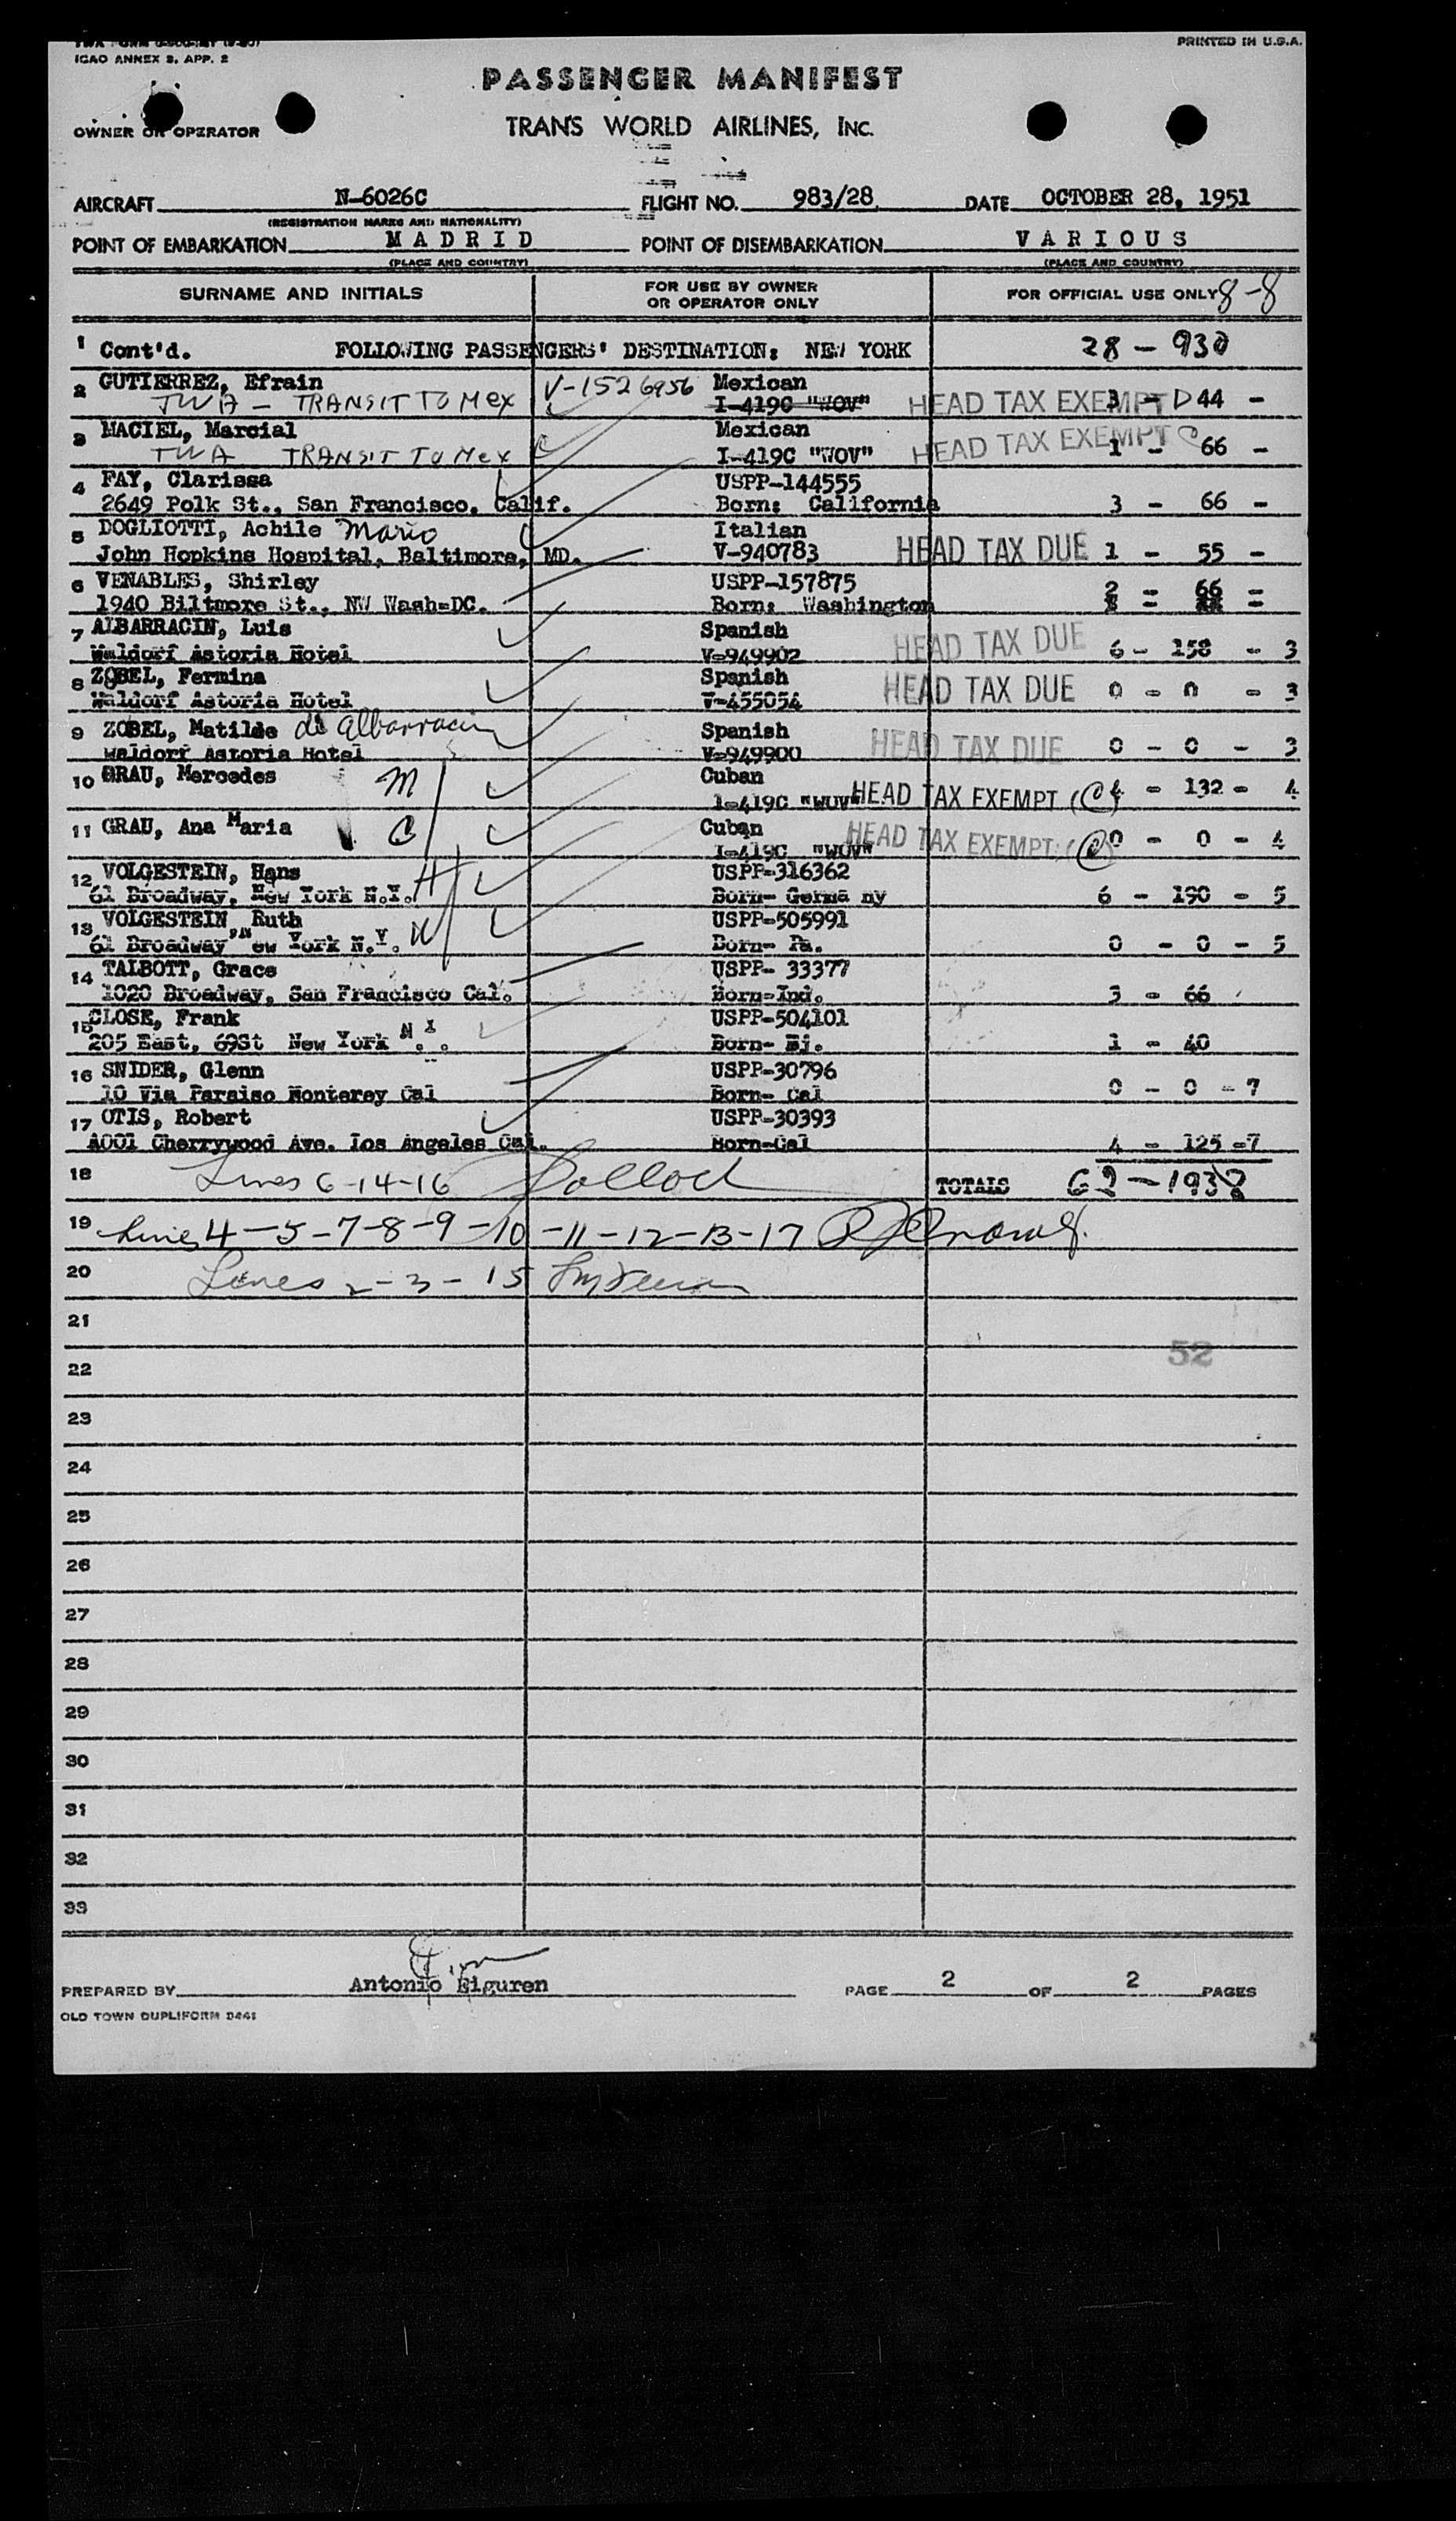 ICAO ANNEX 9, APP. 2
PRINTED IN U.S.A.
PASSENGER MANIFEST
OWNER OR OPERATOR TRANS WORLD AIRLINES, INC.
AIRCRAFT N-6026C FLIGHT NO. 983/28 DATE OCTOBER 28, 1951
(REGISTRATION MARKS AND NATIONALITY)
POINT OF EMBARKATION MADRID POINT OF DISEMBARKATION VARIOUS
(PLACE AND COUNTRY) (PLACE AND COUNTRY)
SURNAME AND INITIALS FOR USE BY OWNER OR OPERATOR ONLY FOR OFFICIAL USE ONLY 8-8
1 Cont'd. FOLLOWING PASSENGERS' DESTINATION: NEW YORK 28 - 930
2 GUTIERREZ, Efrain V-1526956 Mexican
TWA - TRANSIT TO Mex I-419C "WOV" HEAD TAX EXEMPT 3 - 44 -
3 MACIEL, Marcial Mexican
TWA TRANSIT TO Mex I-419C "WOV" HEAD TAX EXEMPT 1 - 66 -
4 FAY, Clarissa USPP-144555
2649 Polk St., San Francisco, Calif. Born: California 3 - 66 -
5 DOGLIOTTI, Achile Mario Italian
John Hopkins Hospital, Baltimore, MD. V-940783 HEAD TAX DUE 1 - 55 -
6 VENABLES, Shirley USPP-157875
1940 Biltmore St., NW Wash=DC. Born: Washington 2 - 66 -
7 ALBARRACIN, Luis Spanish
Waldorf Astoria Hotel V-949902 HEAD TAX DUE 6 - 158 - 3
8 ZOBEL, Fermina Spanish
Waldorf Astoria Hotel V-455054 HEAD TAX DUE 0 - 0 - 3
9 ZOBEL, Matilde de Albarracin Spanish
Waldorf Astoria Hotel V-949900 HEAD TAX DUE 0 - 0 - 3
10 GRAU, Mercedes M Cuban
I-419C "WOV" HEAD TAX EXEMPT (C) 4 - 132 - 4
11 GRAU, Ana Maria C Cuban
I-419C "WOV" HEAD TAX EXEMPT (C) 0 - 0 - 4
12 VOLGESTEIN, Hans H USPP-316362
61 Broadway, New York N.Y. Born- Germa ny 6 - 190 - 5
13 VOLGESTEIN, Ruth W USPP-505991
61 Broadway New York N.Y. Born- Pa. 0 - 0 - 5
14 TALBOTT, Grace USPP- 33377
1020 Broadway, San Francisco Cal. Born-Ind. 3 - 66
15 CLOSE, Frank USPP-504101
205 East, 69St New York N.Y. Born- Nj. 1 - 40
16 SNIDER, Glenn USPP-30796
10 Via Paraiso Monterey Cal Born- Cal 0 - 0 - 7
17 OTIS, Robert USPP-30393
4001 Cherrywood Ave. Los Angeles Cal. Born-Cal 4 - 125 -7
18 Lines 6-14-16 TOTALS 62 - 1938
19 Lines 4-5-7-8-9-10-11-12-13-17
20 Lines 2-3-15
21
52
22
23
24
25
26
27
28
29
30
31
32
33
PREPARED BY Antonio Eiguren PAGE 2 OF 2 PAGES
OLD TOWN DUPLIFORM D461